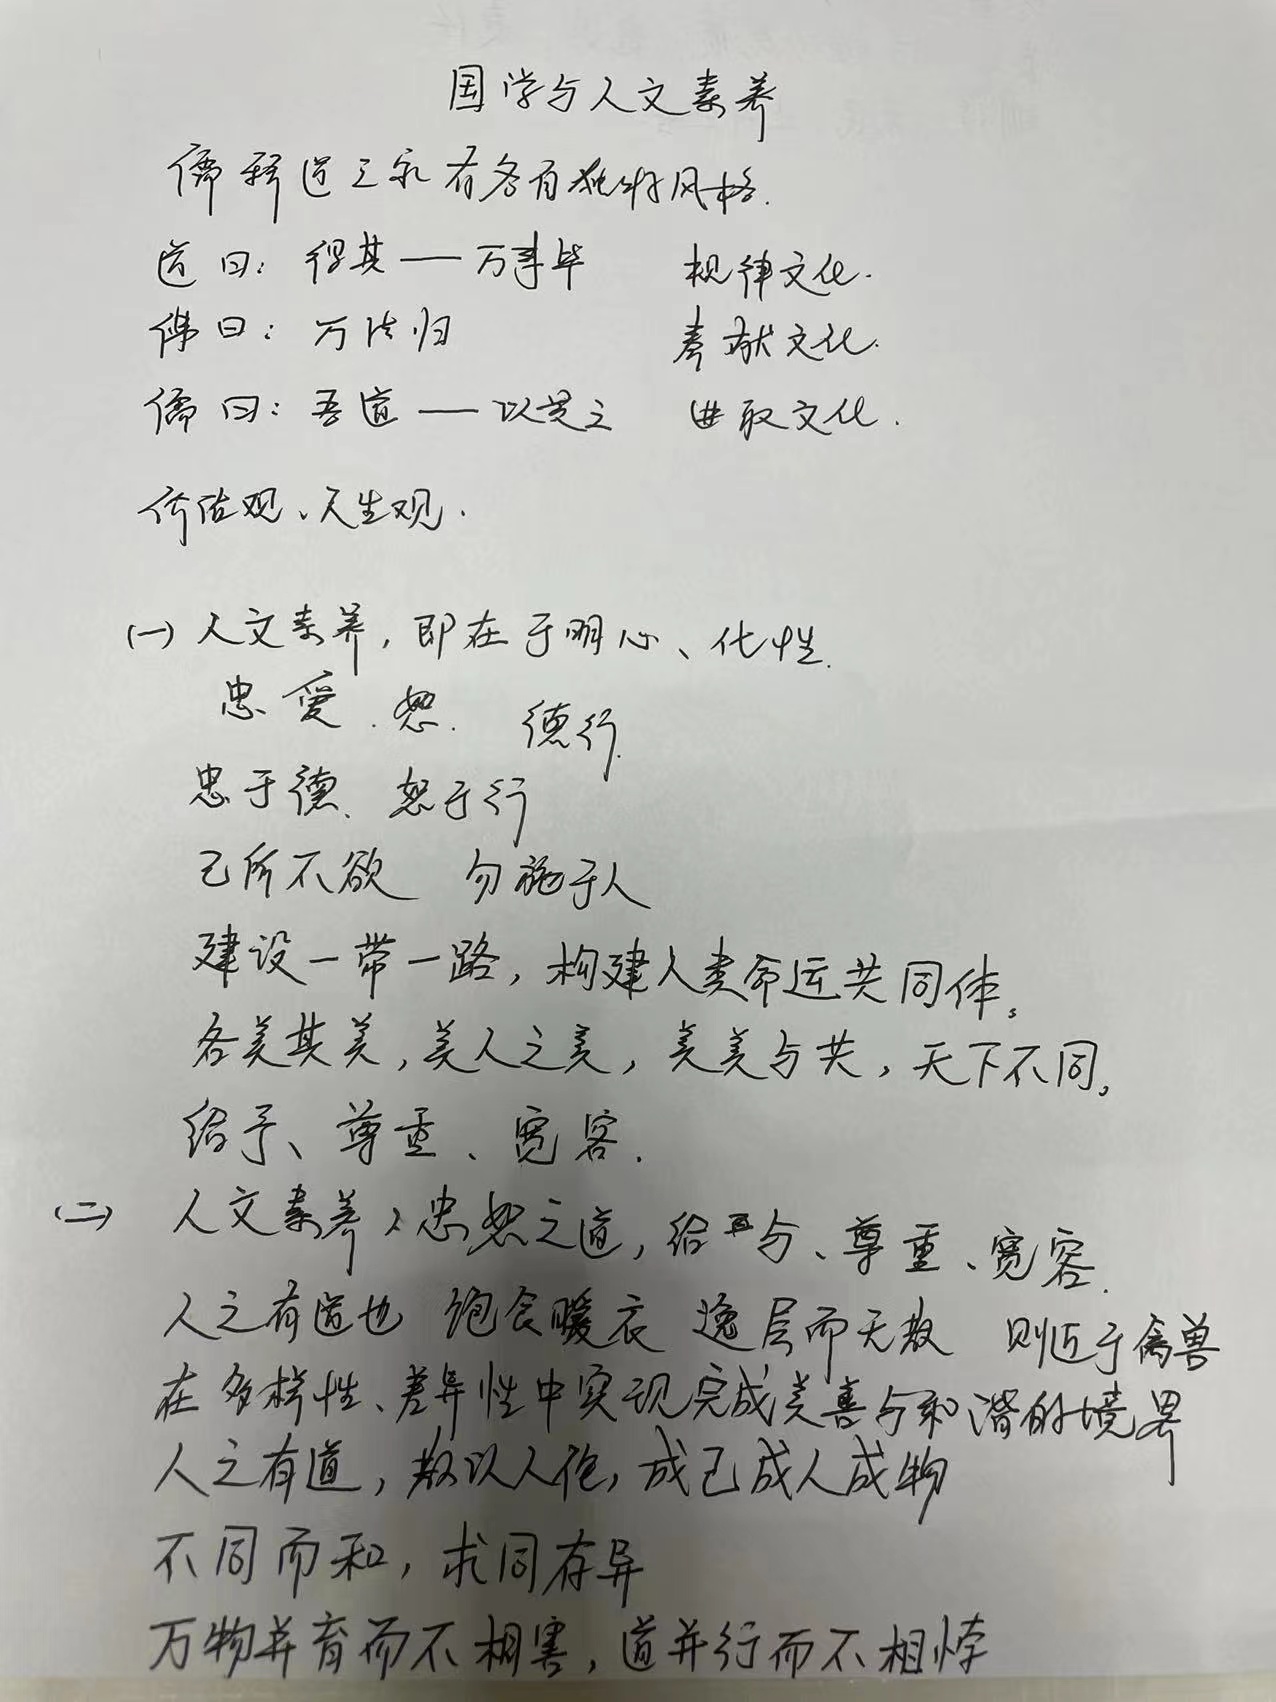 国学与人文素养
儒释道三家有各自独特风格.
道曰：得其一万事毕 规律文化.
佛曰：万法归 奉献文化.
儒曰：吾道一以贯之 进取文化.
价值观、人生观.
(一) 人文素养，即在于明心、化性.
忠 爱.恕. 德行.
忠于德、恕于行
己所不欲 勿施于人
建设一带一路，构建人类命运共同体。
各美其美，美人之美，美美与共，天下不同，
给予、尊重、宽容.
(二) 人文素养、忠恕之道，给与、尊重、宽容.
人之有道也 饱食暖衣 逸居而无教 则近于禽兽
在多样性、差异性中实现完成美善与和谐的境界
人之有道，教以人伦，成己成人成物
不同而和，求同存异
万物并育而不相害，道并行而不相悖